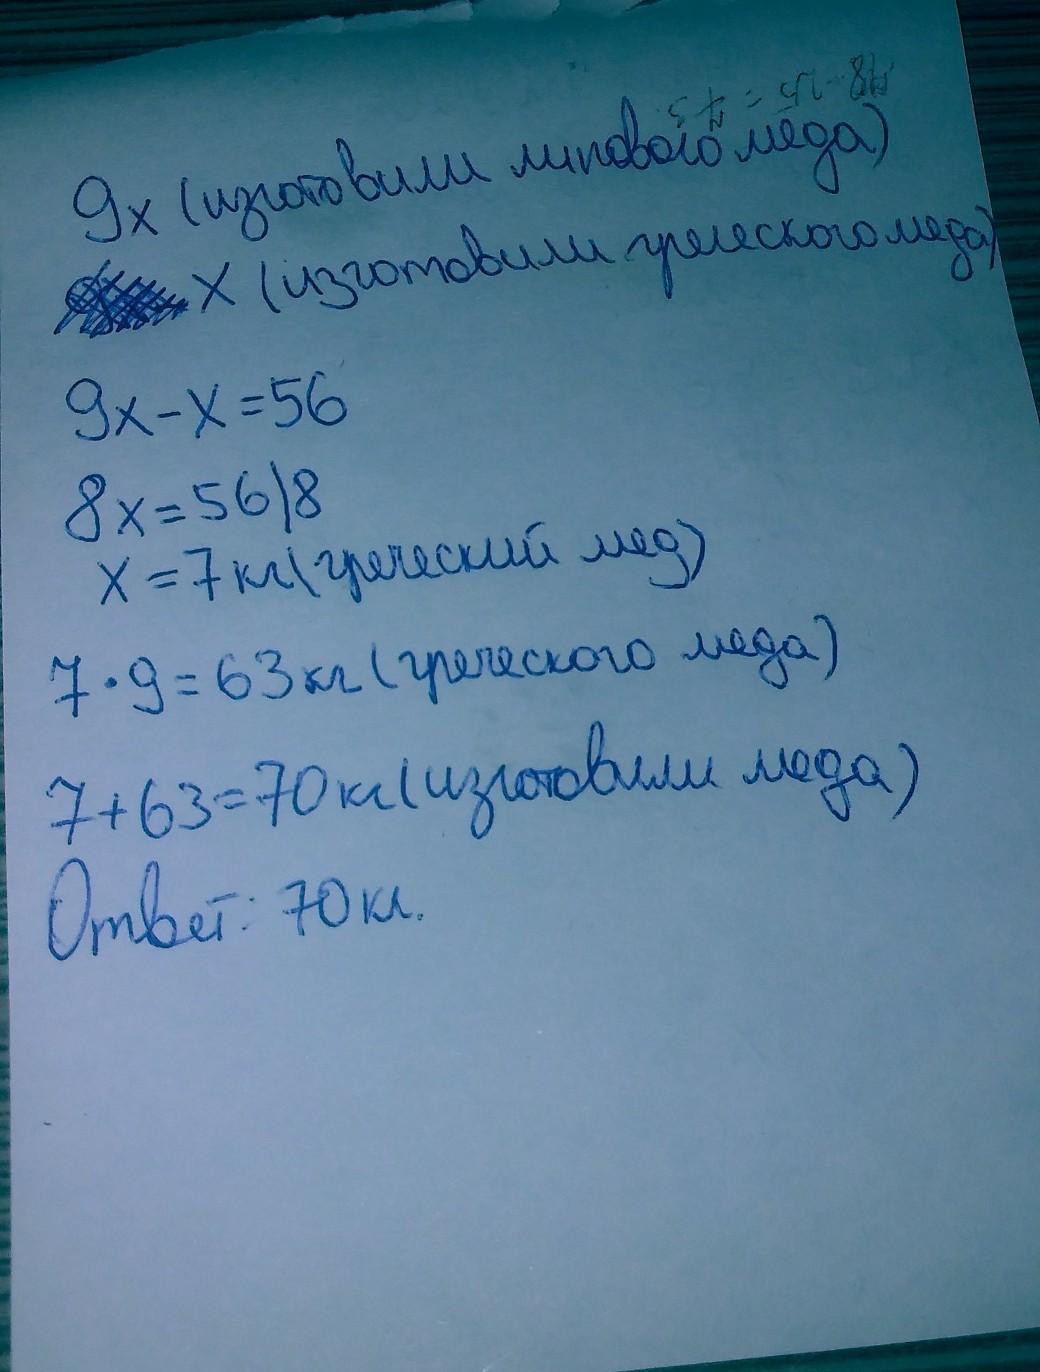 9x (изготовили липового меда)
x (изготовили греческого меда)
9x-x=56
8x=56|8
x=7кг(греческий мед)
7·9=63кг(греческого меда)
7+63=70кг(изготовили меда)
Ответ: 70кг.